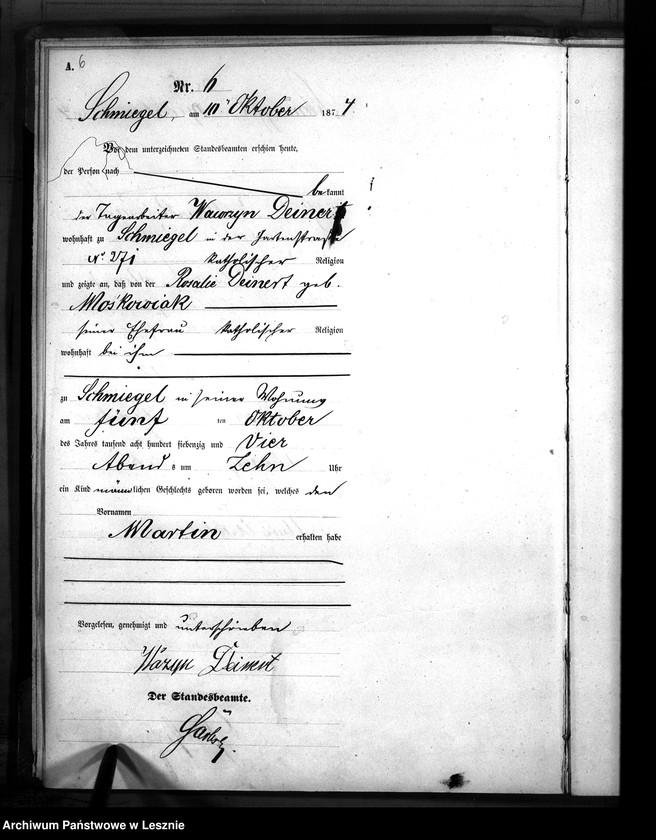 A. 6
Nr. 6
Schmiegel, am 10 Oktober 1874
Vor dem unterzeichneten Standesbeamten erschien heute,
der Person nach
bekannt
der Tagearbeiter Wawrzyn Deinert
wohnhaft zu Schmiegel in der Gartenstraße
No 271 katholischer Religion
und zeigte an, daß von der Rosalie Deinert geb.
Moskowiak
seiner Ehefrau katholischer Religion
wohnhaft bei ihm
zu Schmiegel in seiner Wohnung
am fünf ten Oktober
des Jahres tausend acht hundert siebenzig und Vier
Abends um Zehn Uhr
ein Kind männlichen Geschlechts geboren worden sei, welches den
Vornamen
Martin erhalten habe
Vorgelesen, genehmigt und unterschrieben
Deinert
Der Standesbeamte.
Archiwum Państwowe w Lesznie